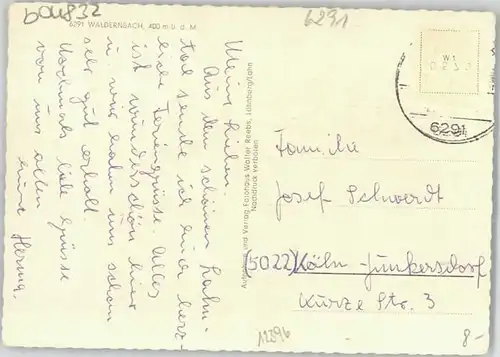 b04832
6291
6291 WALDERNBACH, 400 m ü. d. M
Meine Lieben.
Aus dem schönen Lahn-
tal sende ich euch herz-
liche Feriengrüsse. Alles
ist wunderschön hier
u. wir haben uns schon
sehr gut erholt.
Nochmals liebe Grüsse
von uns allen
eure Herma.
Aufnahme und Verlag Fotohaus Walter Reebs, Löhnberg/Lahn
Nachdruck verboten
6291
Familie
Josef Schwerdt
(5022) Köln-Junkersdorf
Kurze Str. 3
12896
8-